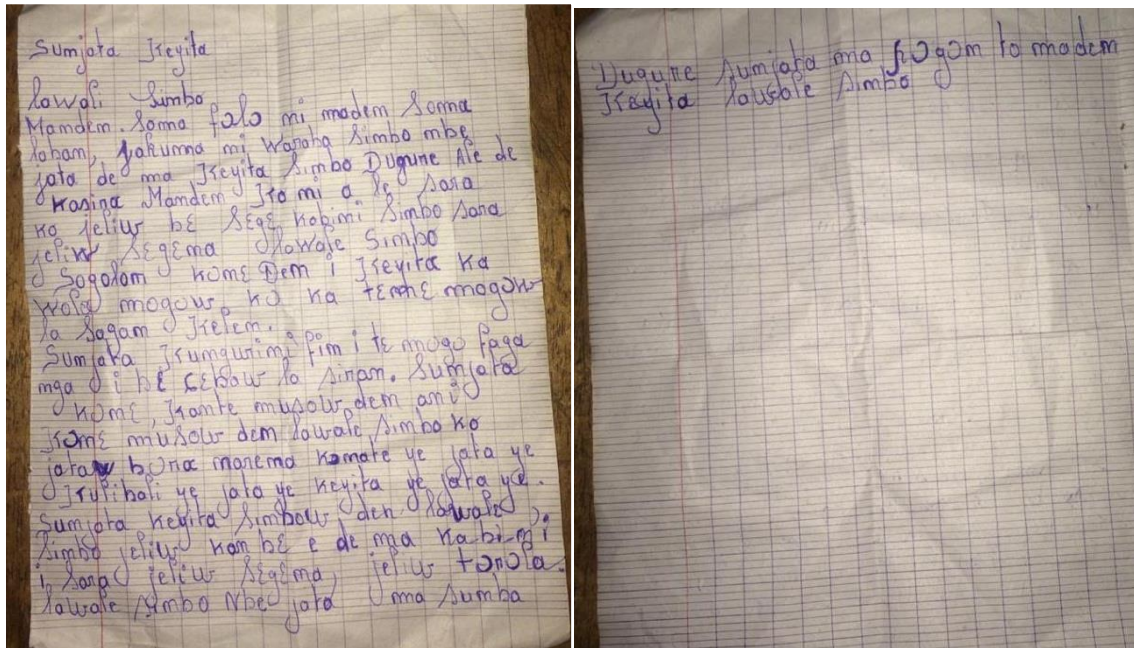 Sumjata Keyita
Lawali Simbo
Mamdem. Soma folo mi madem Soma
labam, jakuma mi waraba Simbo mbe
jata de ma Keyita Simbo Dugune Ale de
kasina Mamdem Ko mi a le sara
ko jeliw bɛ sɛgɛ kobimi Simbo sara
jeliw sɛgɛma lawale Simbo
Sogolom Komɛ Dem i Keyita ka
wola mogow ko ka tɛmɛ mogow
la sagam Kelem.
Sumjata Kumgurimi fim i tɛ mogo faga
mga i bɛ cɛbaw la siran. Sumjata
Komɛ, Kante musow dem ani
Komɛ musow dem lawale simbo ko
jataw bɔra marema komate ye jata ye
Kulibali ye jata ye keyita ye jata ye.
Sumjata keyita simbow den lawale,
Simbo jeliw kan bɛ e de ma kabi-mi
i sara jeliw sɛgɛma, jeliw tɔnɔla.
lawale simbo Nbe jata ma sumba
Dugune sumjata ma ɲɔgom to madem
Keyita lawale simbo